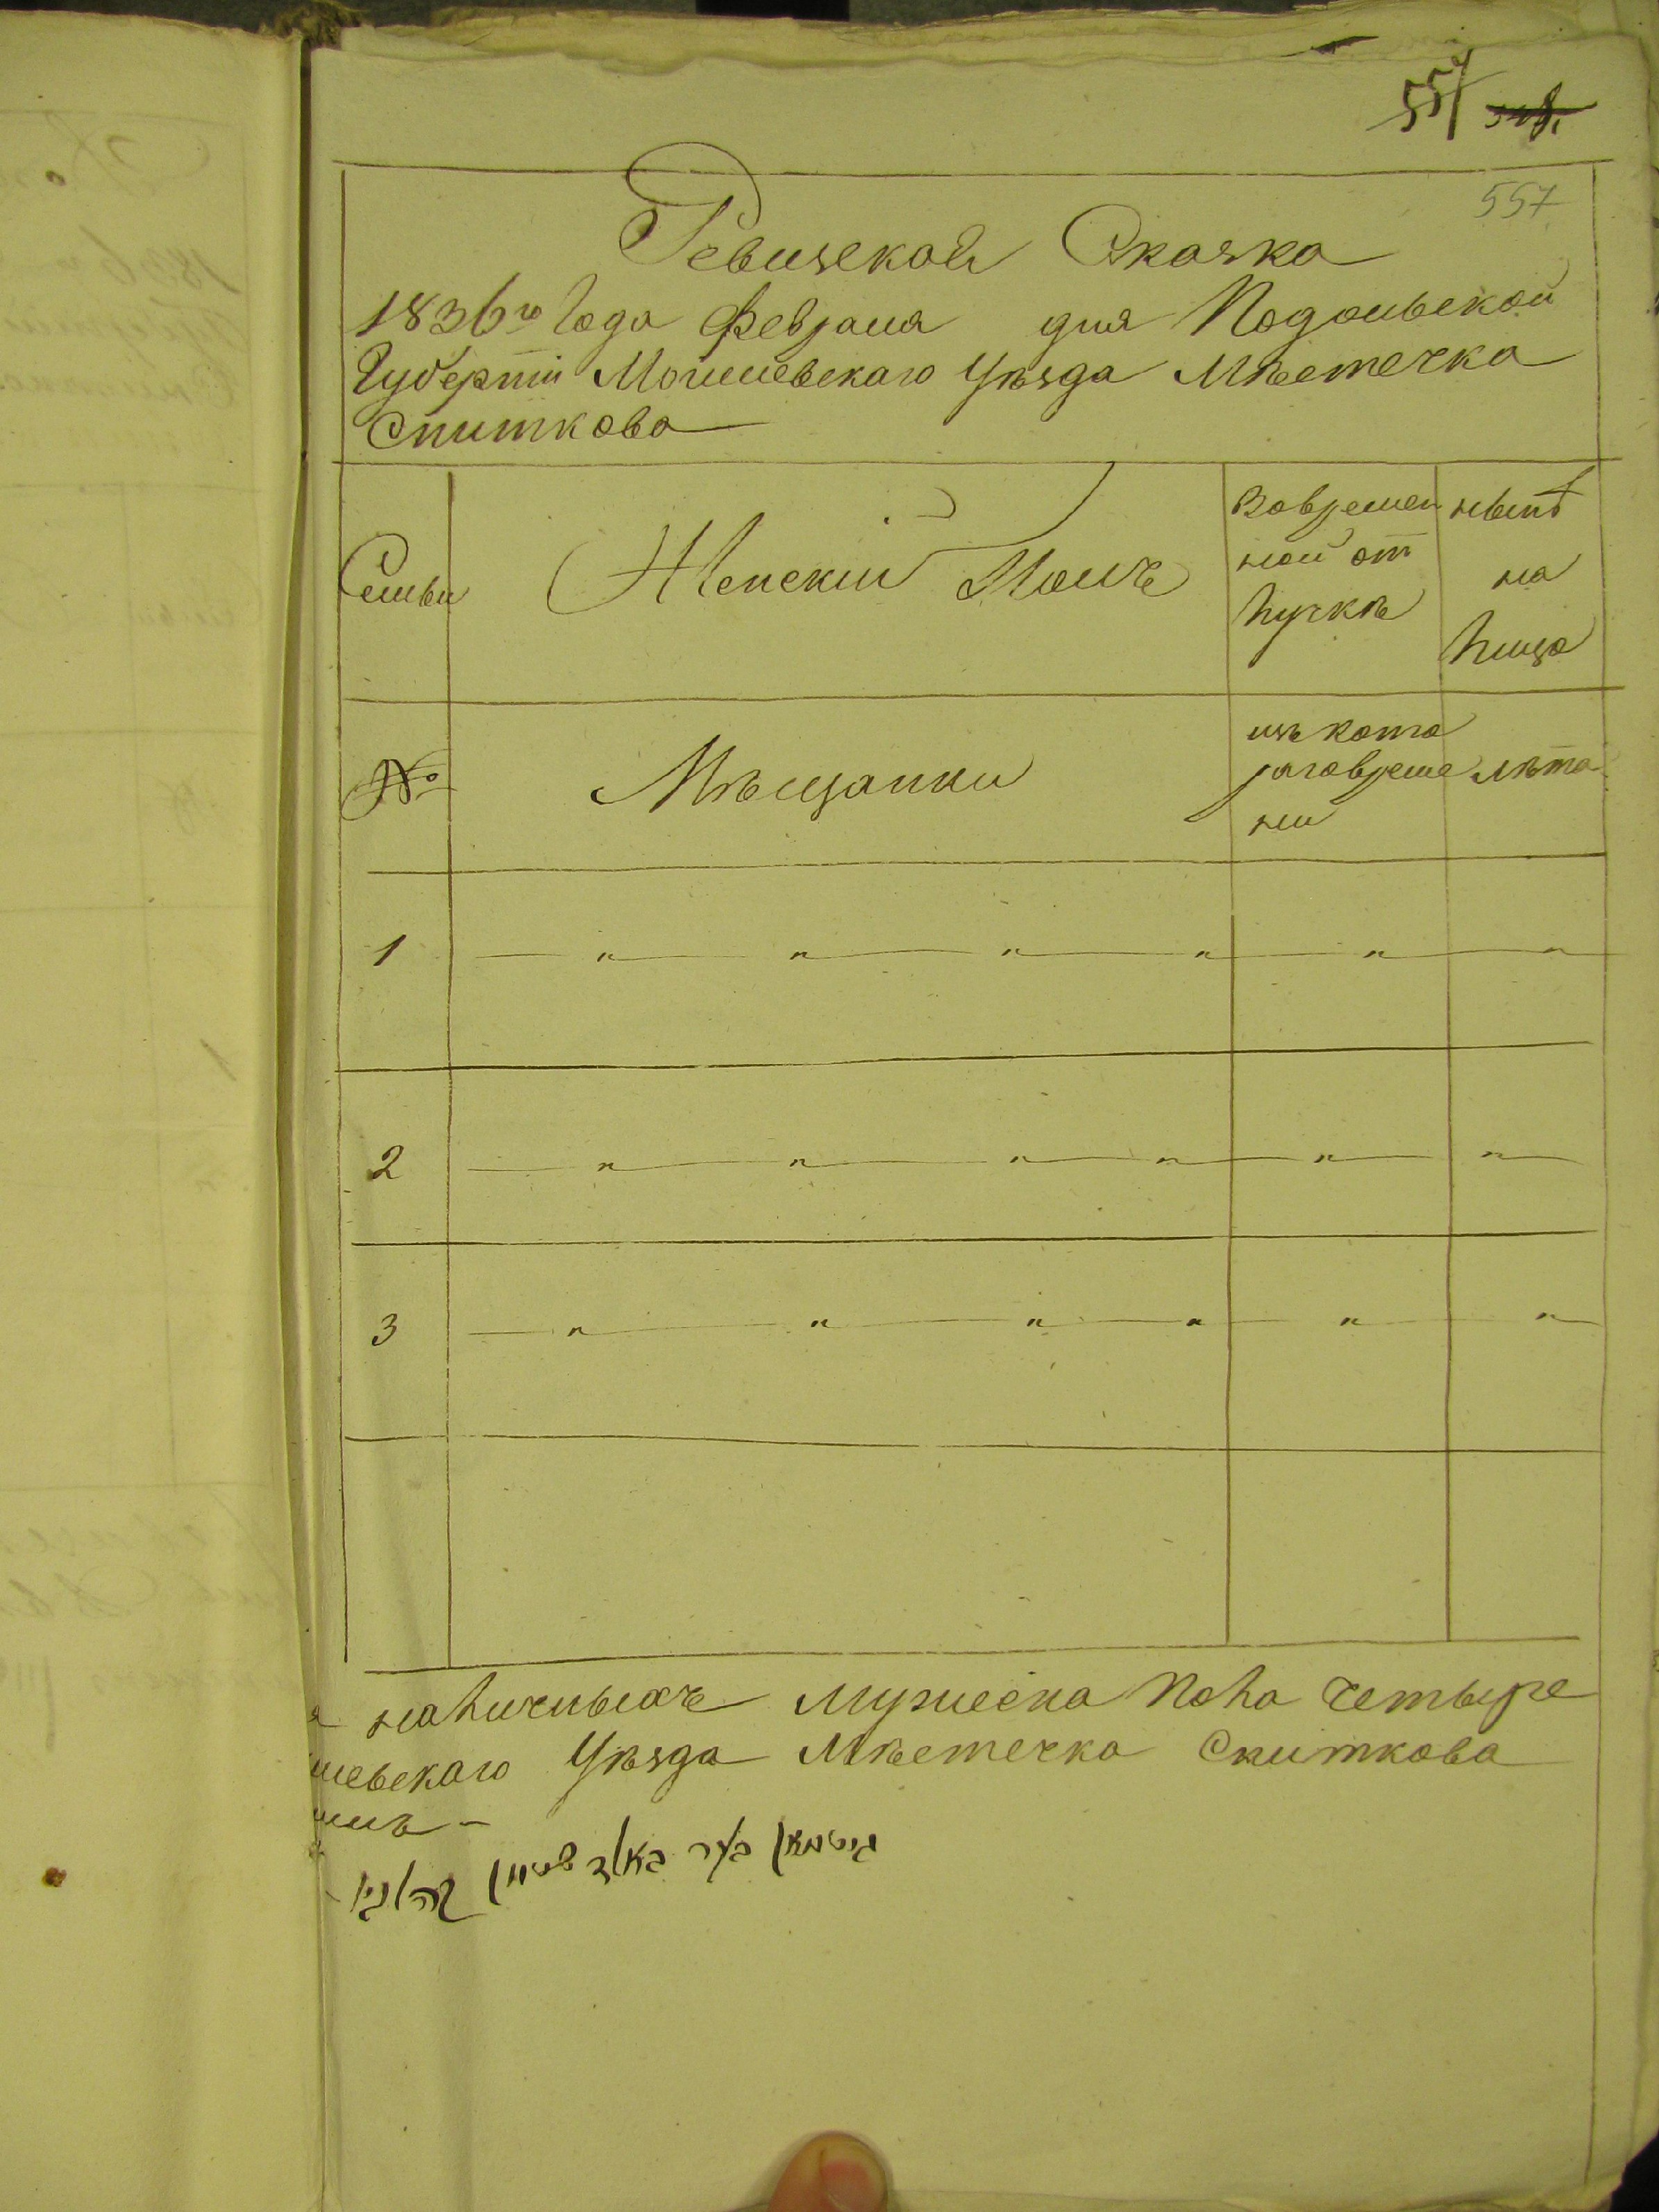 557
557
Ревизская Сказка
1836го Года Февраля дня Подольской
Губерніи Могилевскаго Уѣзда Мѣстечка
Сниткова
Семьи
Женский Полъ
Вовремен
ной от
лучкѣ
нынѣ
на
лицо
№
Мѣщанки
изъ кото
раговреме
ни
лѣта
1 — " — " — " — " — " — "
2 — " — " — " — " — " — "
3 — " — " — " — " — " — "
наличныхъ мужеска пола четыре
левскаго Уѣзда Мѣстечка Сниткова